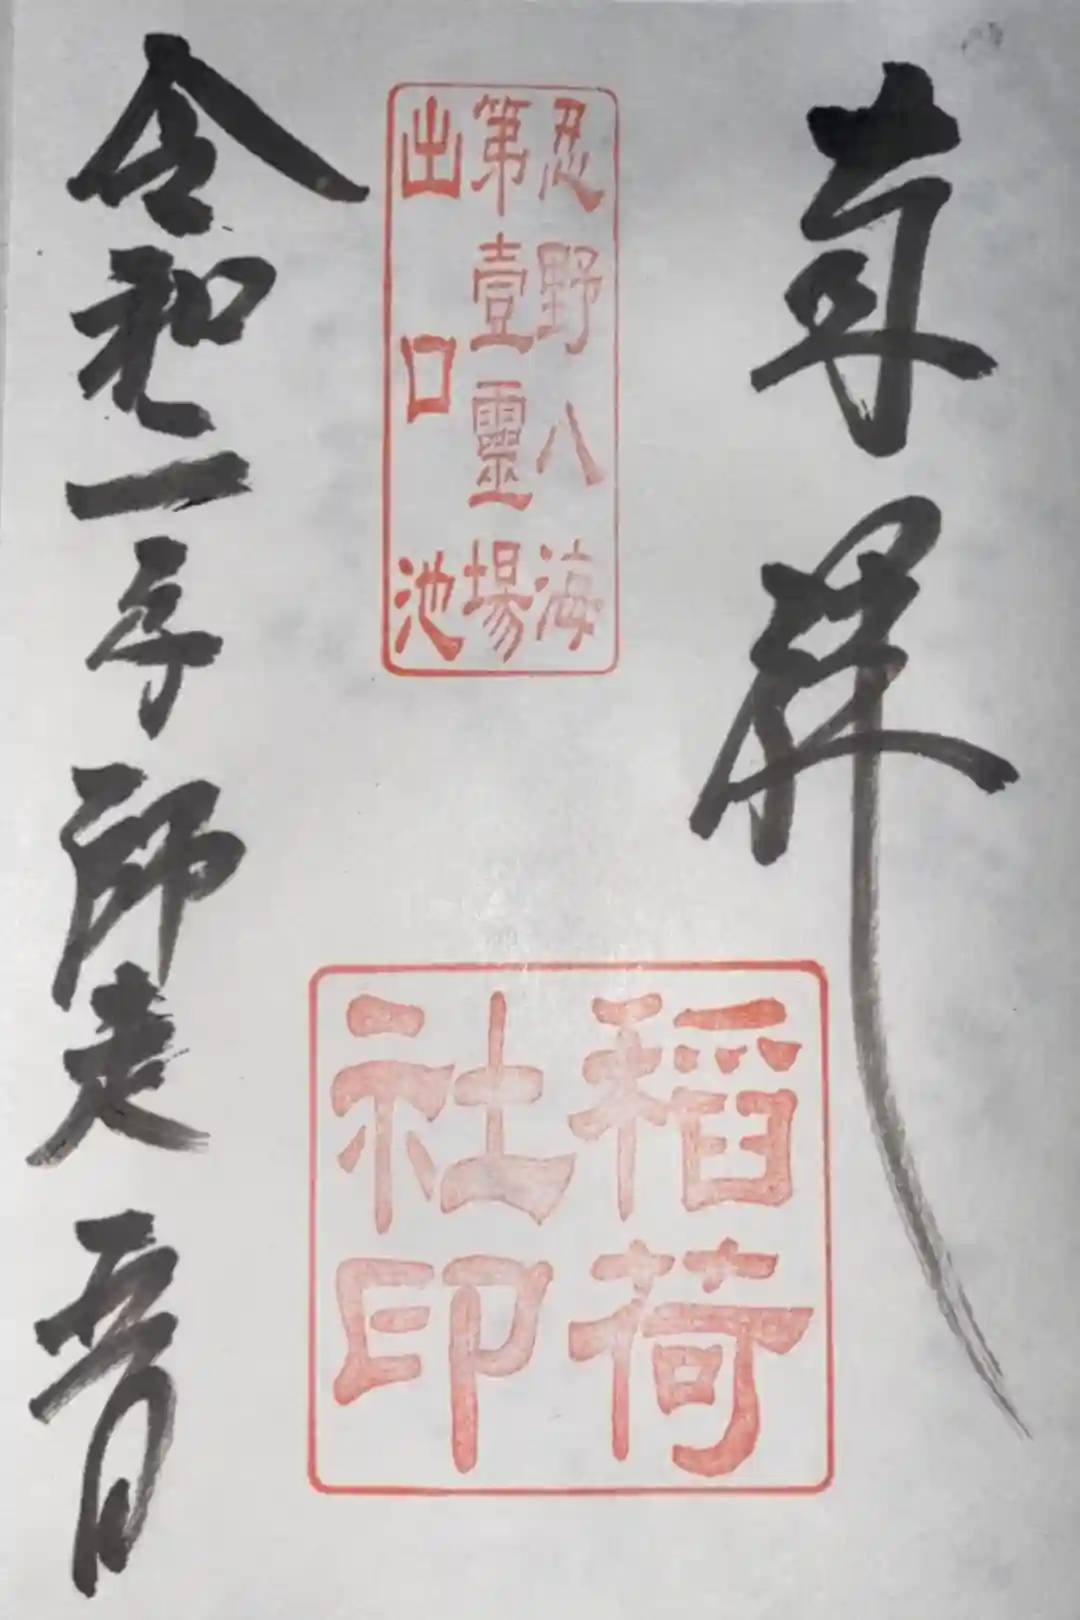 奉拝
忍野八海
第壹靈場
出口池
稲荷
社印
令和一年師走五日